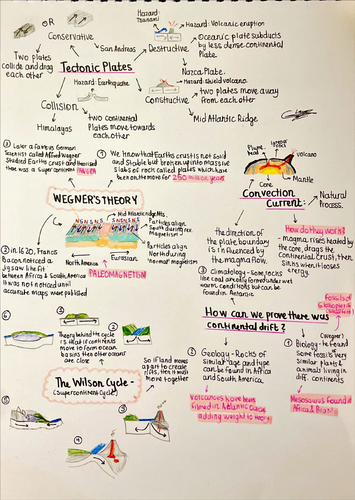 OR
Conservative
San Andreas
Two plates
collide and drag
each other
Tectonic Plates
Hazard:
Tsunami
Hazard: Volcanic eruption
Destructive
Oceanic plate subducts
by less dense continental
Plate.
Nazca Plate.
Hazard: Earthquake
Hazard: shield volcano
Collision
Himalayas
two continental
Plates move towards
each other
Constructive
two plates move away
from each other
Mid Atlantic Ridge
③ Later a famous German
Scientist called Alfred Wegner
Studied Earths crust and theorised
there was a Supercontinent PANGEA
④ We know that Earths crust is not solid
and Stable but broken up into massive
Slabs of rock called plates which have
been on the move for 250 million years
WEGNER'S THEORY
② In 1620, Francis
Bacon noticed a
Jigsaw like fit
between Africa & South America
It was not noticed until
accurate maps were published
Mid Atlantic ridge Mts
NSNSN S NSNSN
Particles align
South during rev.
magnetism
Particles align
North during
"normal" magnetism
North America
Eurasian
PALEOMAGNETISM
Volcano
Mantle
Core
Convection
Current:
Natural
Process.
How do they work?
- magma rises heated by
the core, drags the
Continental Crust, then
Sinks when it loses
energy.
the direction of
the plate boundary
is influenced by
the magma flow.
③ Climatology - Some rocks
like coal are only formed under wet
warm conditions but can be
found in Antarctic
Fossils of
How can we prove there was
continental drift?
② Geology - Rocks of
Similar age and type
can be found in Africa
and South America.
① Biology - he found
Some fossils very
Similar plants &
animals living in
diff. continents
Mesosaurus found in
Africa & Brazil
⑥
①
②
Theory behind the cycle
is that if continents
move to form ocean
basins then other oceans
are close
So if land moves
apart to create
rifts, then it must
move together
The Wilson Cycle -
(Supercontinent Cycle)
⑤
④
③